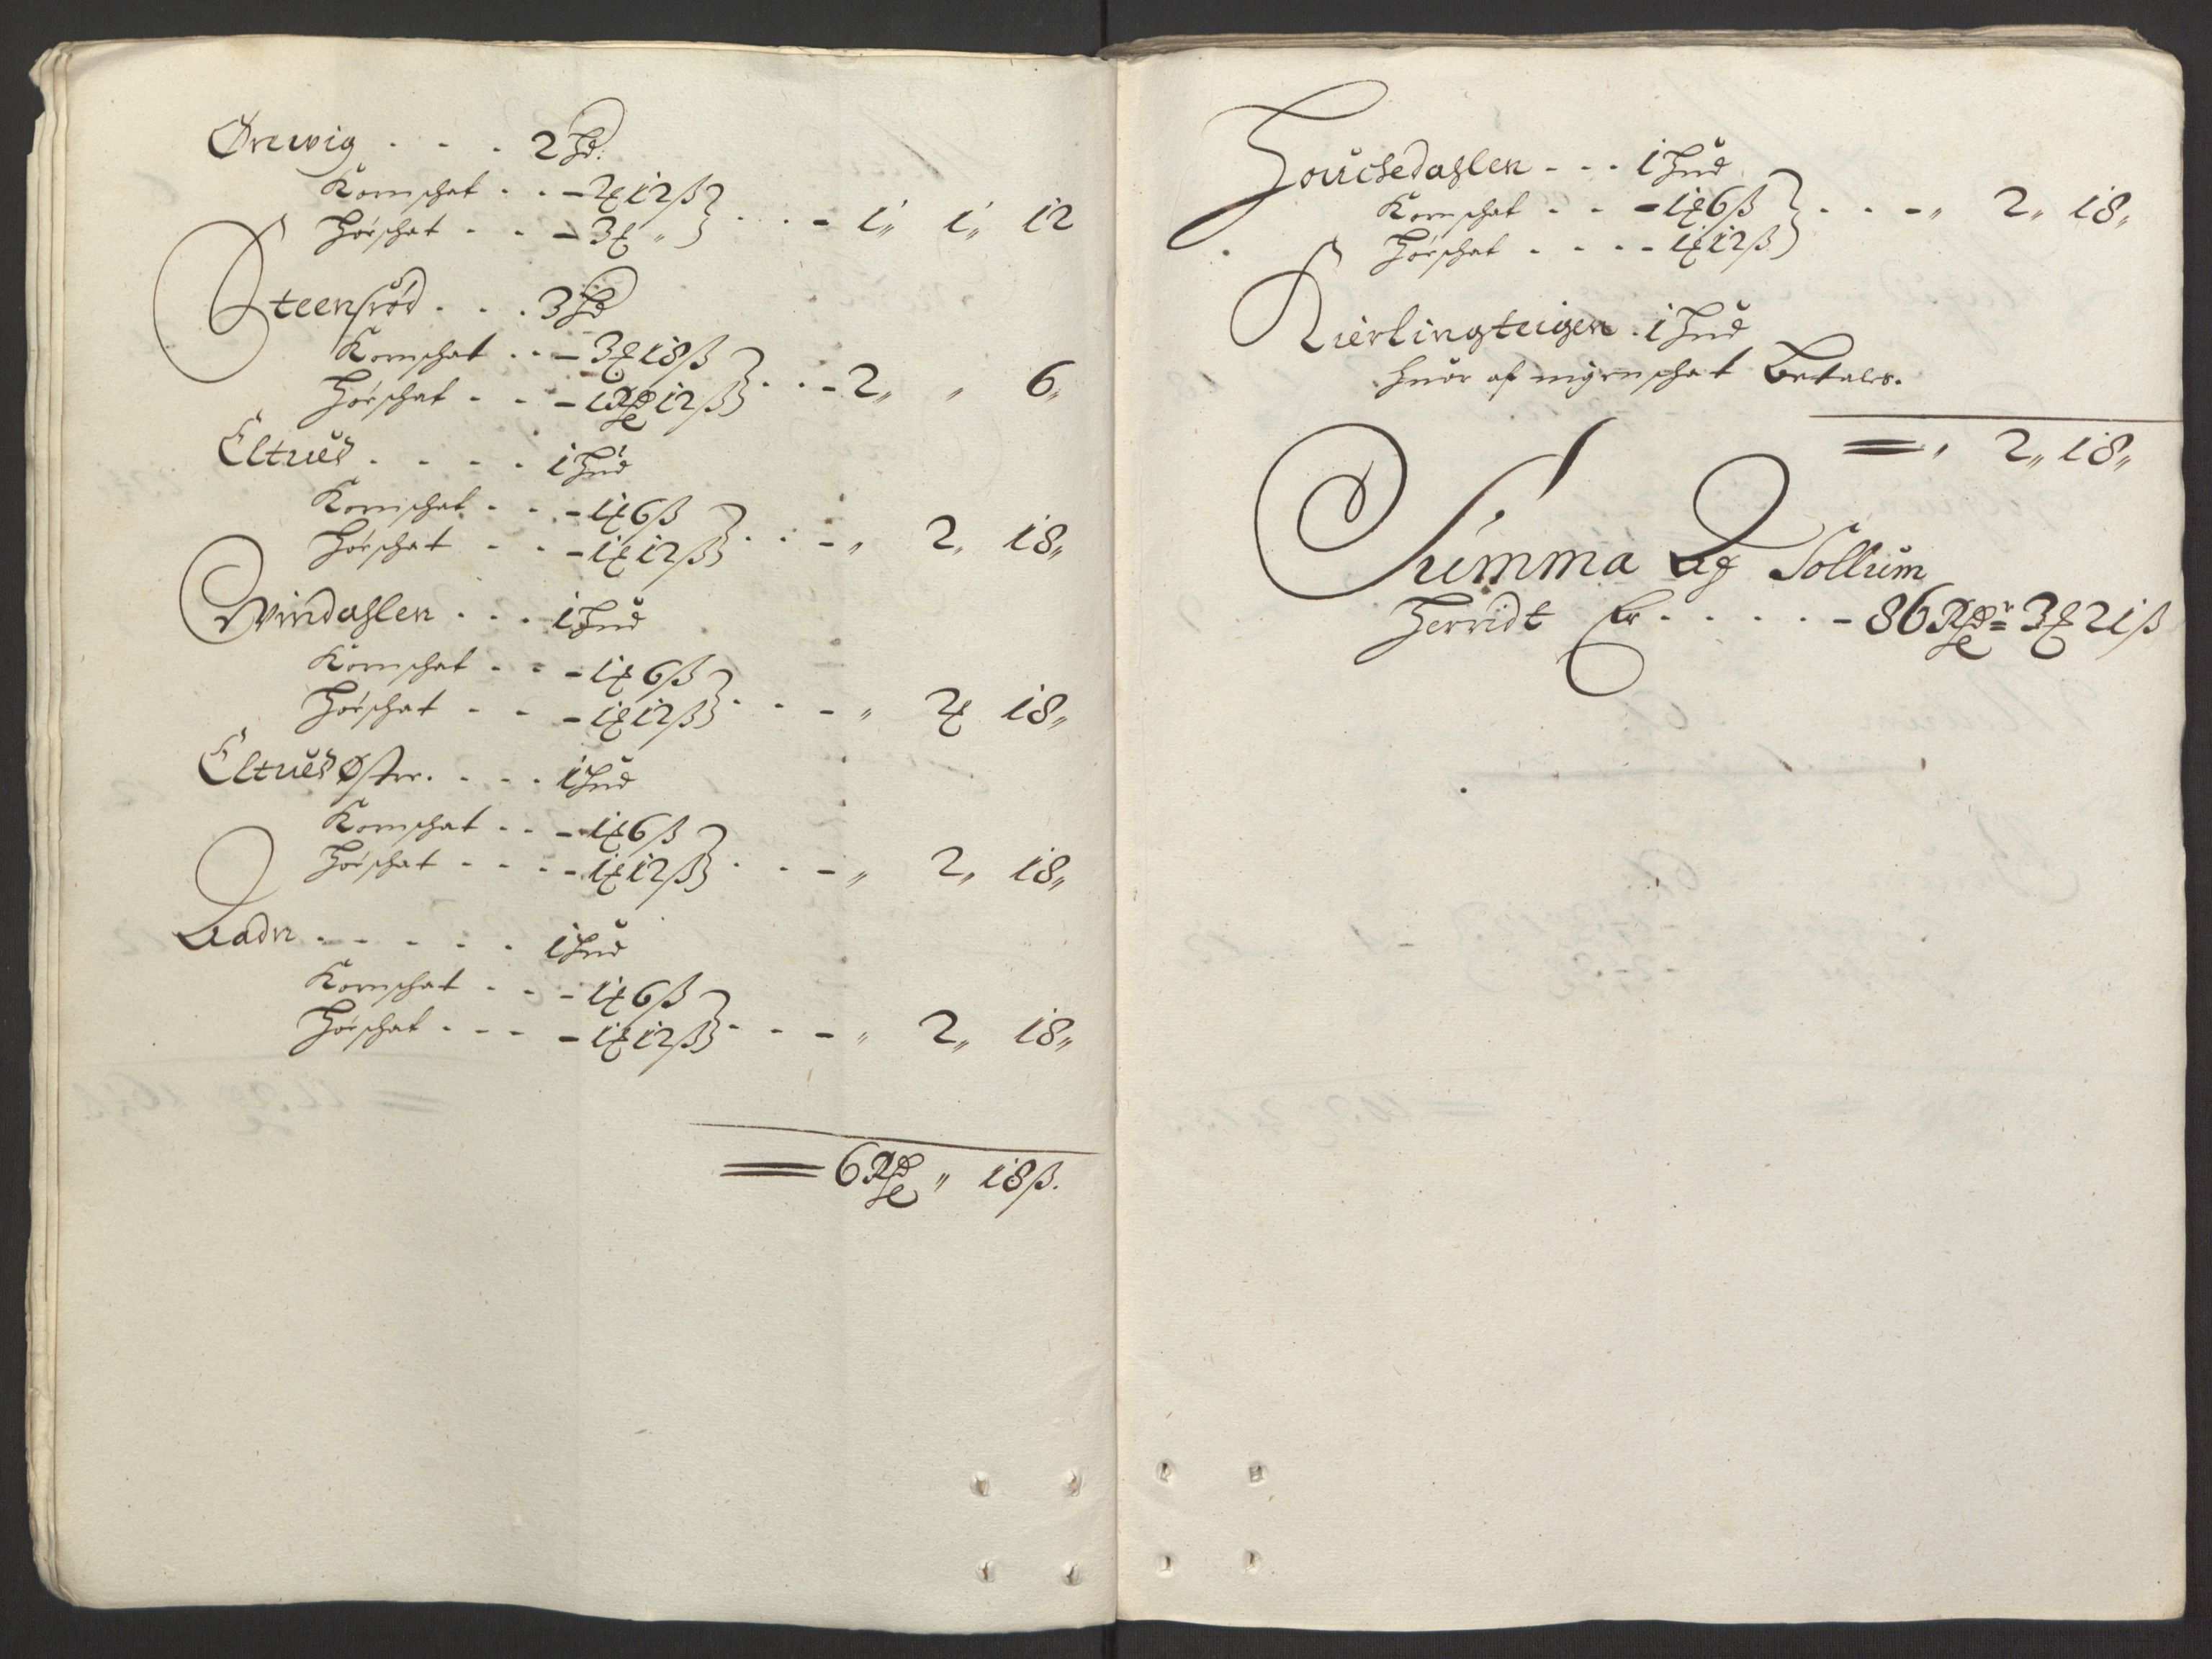 Ørewig . . . 2 Hd:
Kornschat . . - 2 ℳ 12 ß
Hörschat . . - 3 ℳ „ . . . - 1„ 1„ 12
Steensröd . . . 3 Hd
Kornschat . . - 3 ℳ 18 ß
Hörschat . . - 1 Rd 12 ß . . . - 2„ „ 6„
Eltued . . . . 1 Hud
Kornschat . . - 1 ℳ 6 ß
Hörschat . . - 1 ℳ 12 ß . . . - „ 2„ 18„
Windahlen . . . 1 Hud
Kornschat . . - 1 ℳ 6 ß
Hörschat . . - 1 ℳ 12 ß . . . - „ 2 ℳ 18„
Eltued Øster . . . . 1 Hud
Kornschat . . - 1 ℳ 6 ß
Hörschat . . . - 1 ℳ 12 ß . . . - „ 2„ 18„
Aadn . . . . . 1 Hud
Kornschat . . - 1 ℳ 6 ß
Hörschat . . . - 1 ℳ 12 ß . . . - „ 2„ 18„
= 6 Rd „ 18 ß.
Houchedahlen . . . 1 Hud
Kornschat . . - 1 ℳ 6 ß
Hörschat . . . - 1 ℳ 12 ß . . . - „ 2„ 18„
Kierlingteigen . 1 Hud
huor af ingen schat Betales.
= „ 2„ 18„
Summa Af Sollum
Herridt Er . . . . - 86 Rdr = 3 ℳ 21 ß